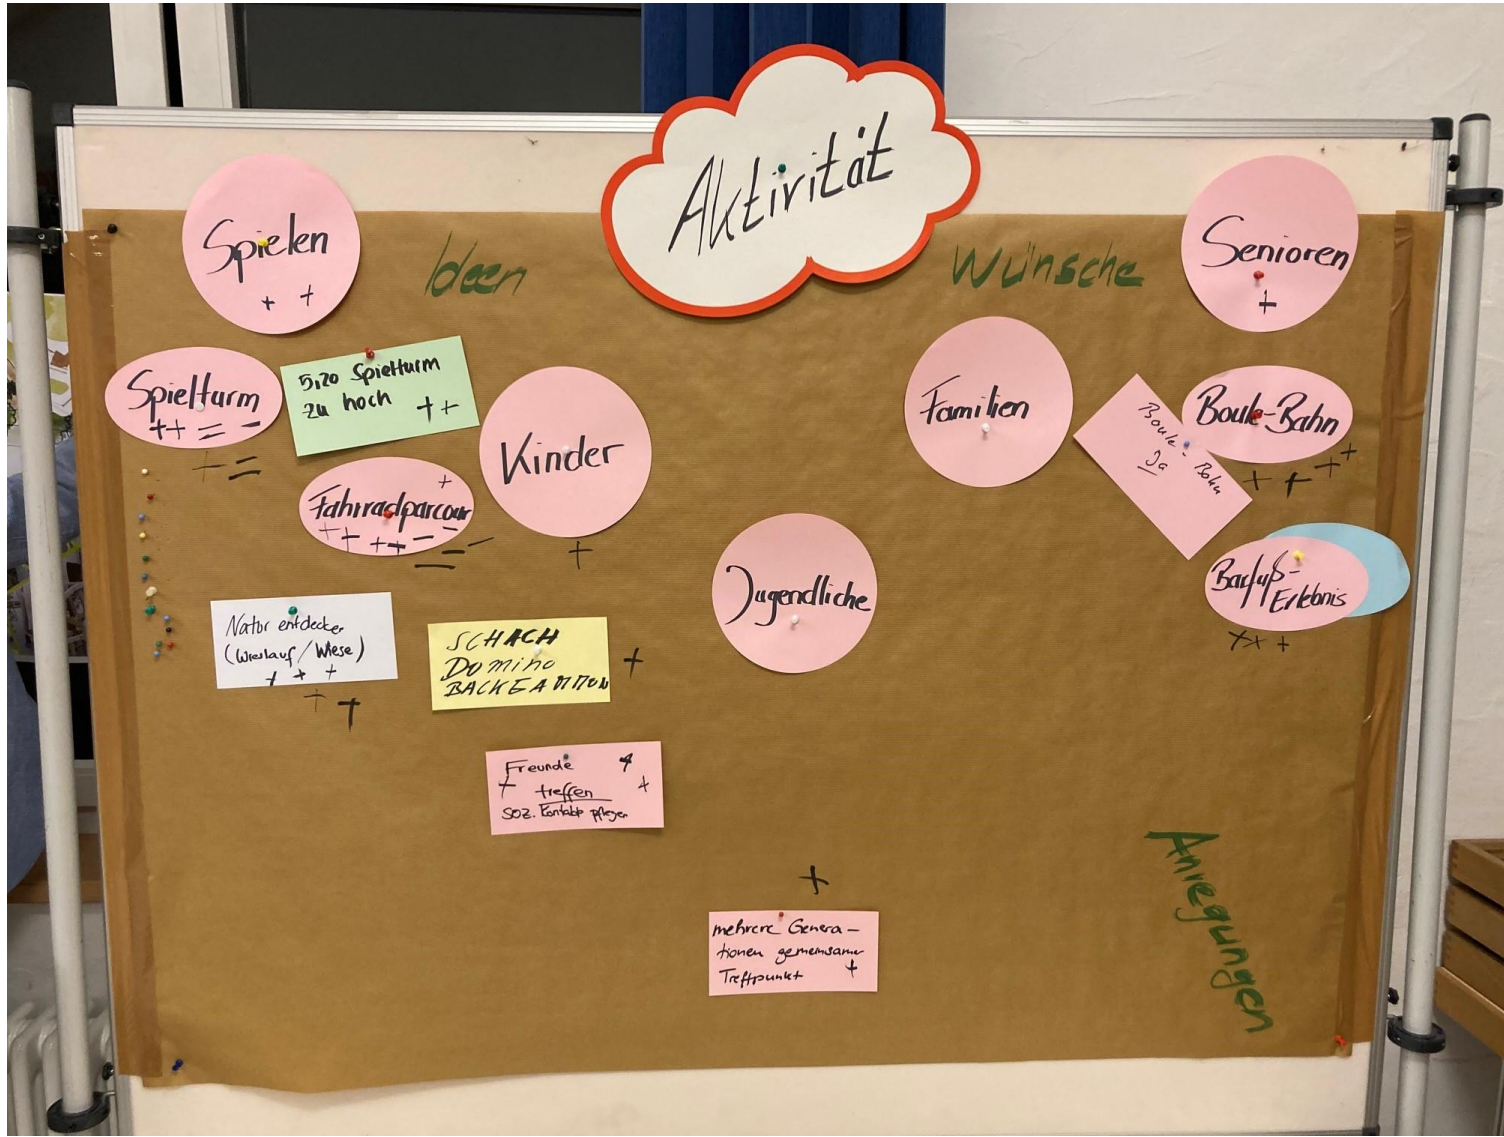 Aktivität
Spielen
+ +
Ideen
Wünsche
Senioren
+
Spielturm
++ = -
+ =
5,20 Spielturm
zu hoch ++
Kinder
+
Fahrradparcour
+
++ ++ - -
= -
Familien
Boule-Bahn
Ja
Boule-Bahn
+ + + +
Barfuß-
Erlebnis
++ +
Jugendliche
Natur entdecken
(Wieslauf/Wiese)
+ + +
+ +
SCHACH
Domino
BACKGAMMON
+
Freunde +
+ treffen +
soz. Kontakte pflegen
+
mehrere Genera-
tionen gemeinsamer
Treffpunkt +
Anregungen